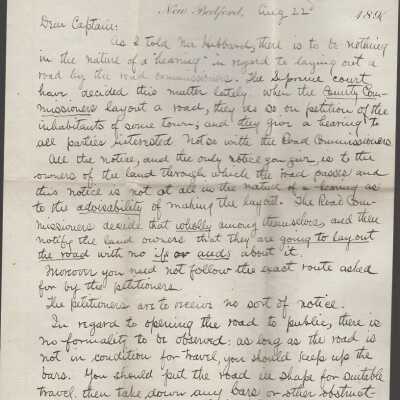 New Bedford, Aug 22d 189
Dear Captain:
As I told Mr Hubbard, there is to be nothing
in the nature of a "hearing" in regard to laying out a
road by the road commissioners. The Supreme court
have decided this matter lately. When the County Com-
missioners layout a road, they do so on petition of the
inhabitants of some town, and they give a hearing to
all parties interested Not so with the Road Commissioners
All the notice, and the only notice you give, is to the
owners of the land through which the road passes and
this notice is not at all in the nature of a hearing as
to the advisability of making the layout. The Road Com-
missioners decide that wholly among themselves, and then
notify the land owners that they are going to layout
the road with no ifs or ands about it.
Moreover you need not follow the exact route asked
for by the petitioners.
The petitioners are to receive no sort of notice.
In regard to opening the road to public, there is
no formality to be observed: as long as the road is
not in condition for travel, you should keep up the
bars. You should put the road in shape for suitable
travel, then take down any bars or other obstruct-